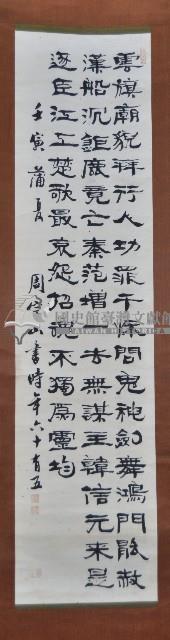 雲旗廟貌拜行人功罪千秋問鬼神劍舞鴻門能赦
漢船沉鉅鹿竟亡秦范增一去無謀主韓信元來是
逐臣江上楚歌最哀怨招魂不獨為靈均
壬寅蒲夏 周定山書時年六十有五
國史館臺灣文獻館
TAIWAN HISTORICA